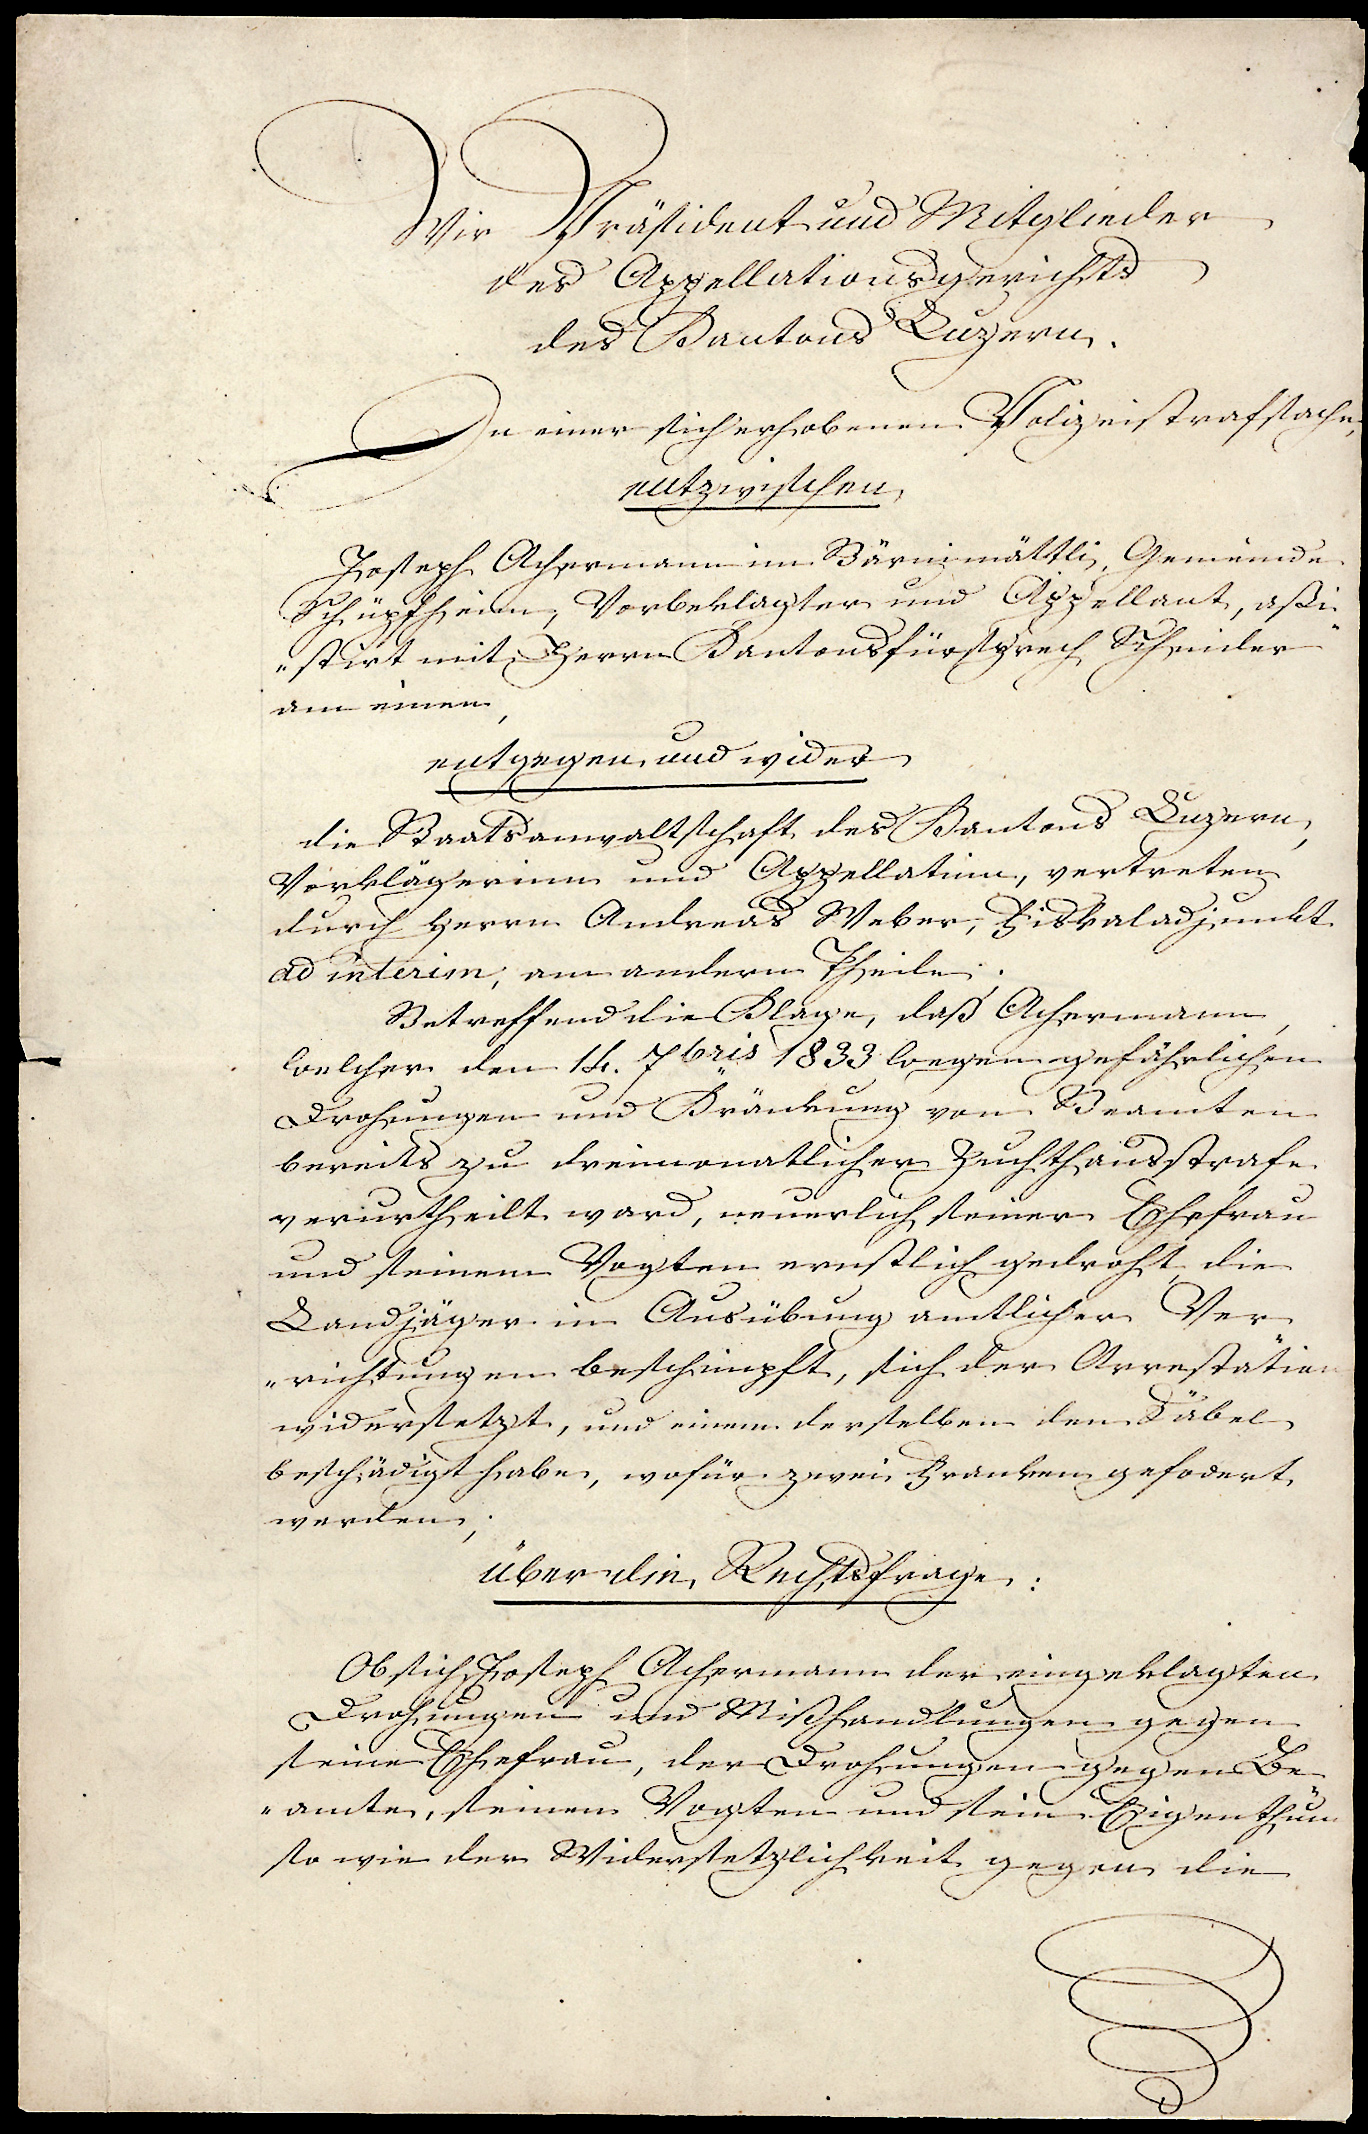 Wir Präsident und Mitglieder
des Appellationsgerichts
des Kantons Luzern.
In einer sich erhobenen Polizeistrafsache,
entzwischen
Joseph Achermann im Bärnimättli, Gemeinde
Schüpfheim, Vorbeklagter und Appellant, aßi„
„stirt mit Herrn Kantonsfürsprech Scheider
am einen,
entgegen und wider
die Staatsanwaltschaft des Kantons Luzern,
Vorklägerinn und Appellatinn, vertreten
durch Herrn Andreas Weber, Fiskaladjunkt
ad interim, am andern Theile;
Betreffend die Klage, daß Achermann,
welcher den 14. 7bris 1833 wegen gefährlichen
Drohungen und Kränkung von Beamten
bereits zu dreimonatlicher Zuchthausstrafe
verurtheilt ward, neuerlich seiner Ehefrau
und seinem Vogten ernstlich gedroht, die
Landjäger in Ausübung amtlicher Ver„
„richtungen beschimpft, sich der Arrestation
widersetzt, und einem derselben den Säbel
beschädigt habe, wofür zwei Franken gefodert
werden;
über die Rechtsfrage:
Ob sich Joseph Achermann der eingeklagten
Drohungen und Mißhandlungen gegen
seine Ehefrau, der Drohungen gegen Be„
„amte, seinen Vogten und sein Eigenthum
so wie der Widersetzlichkeit gegen die